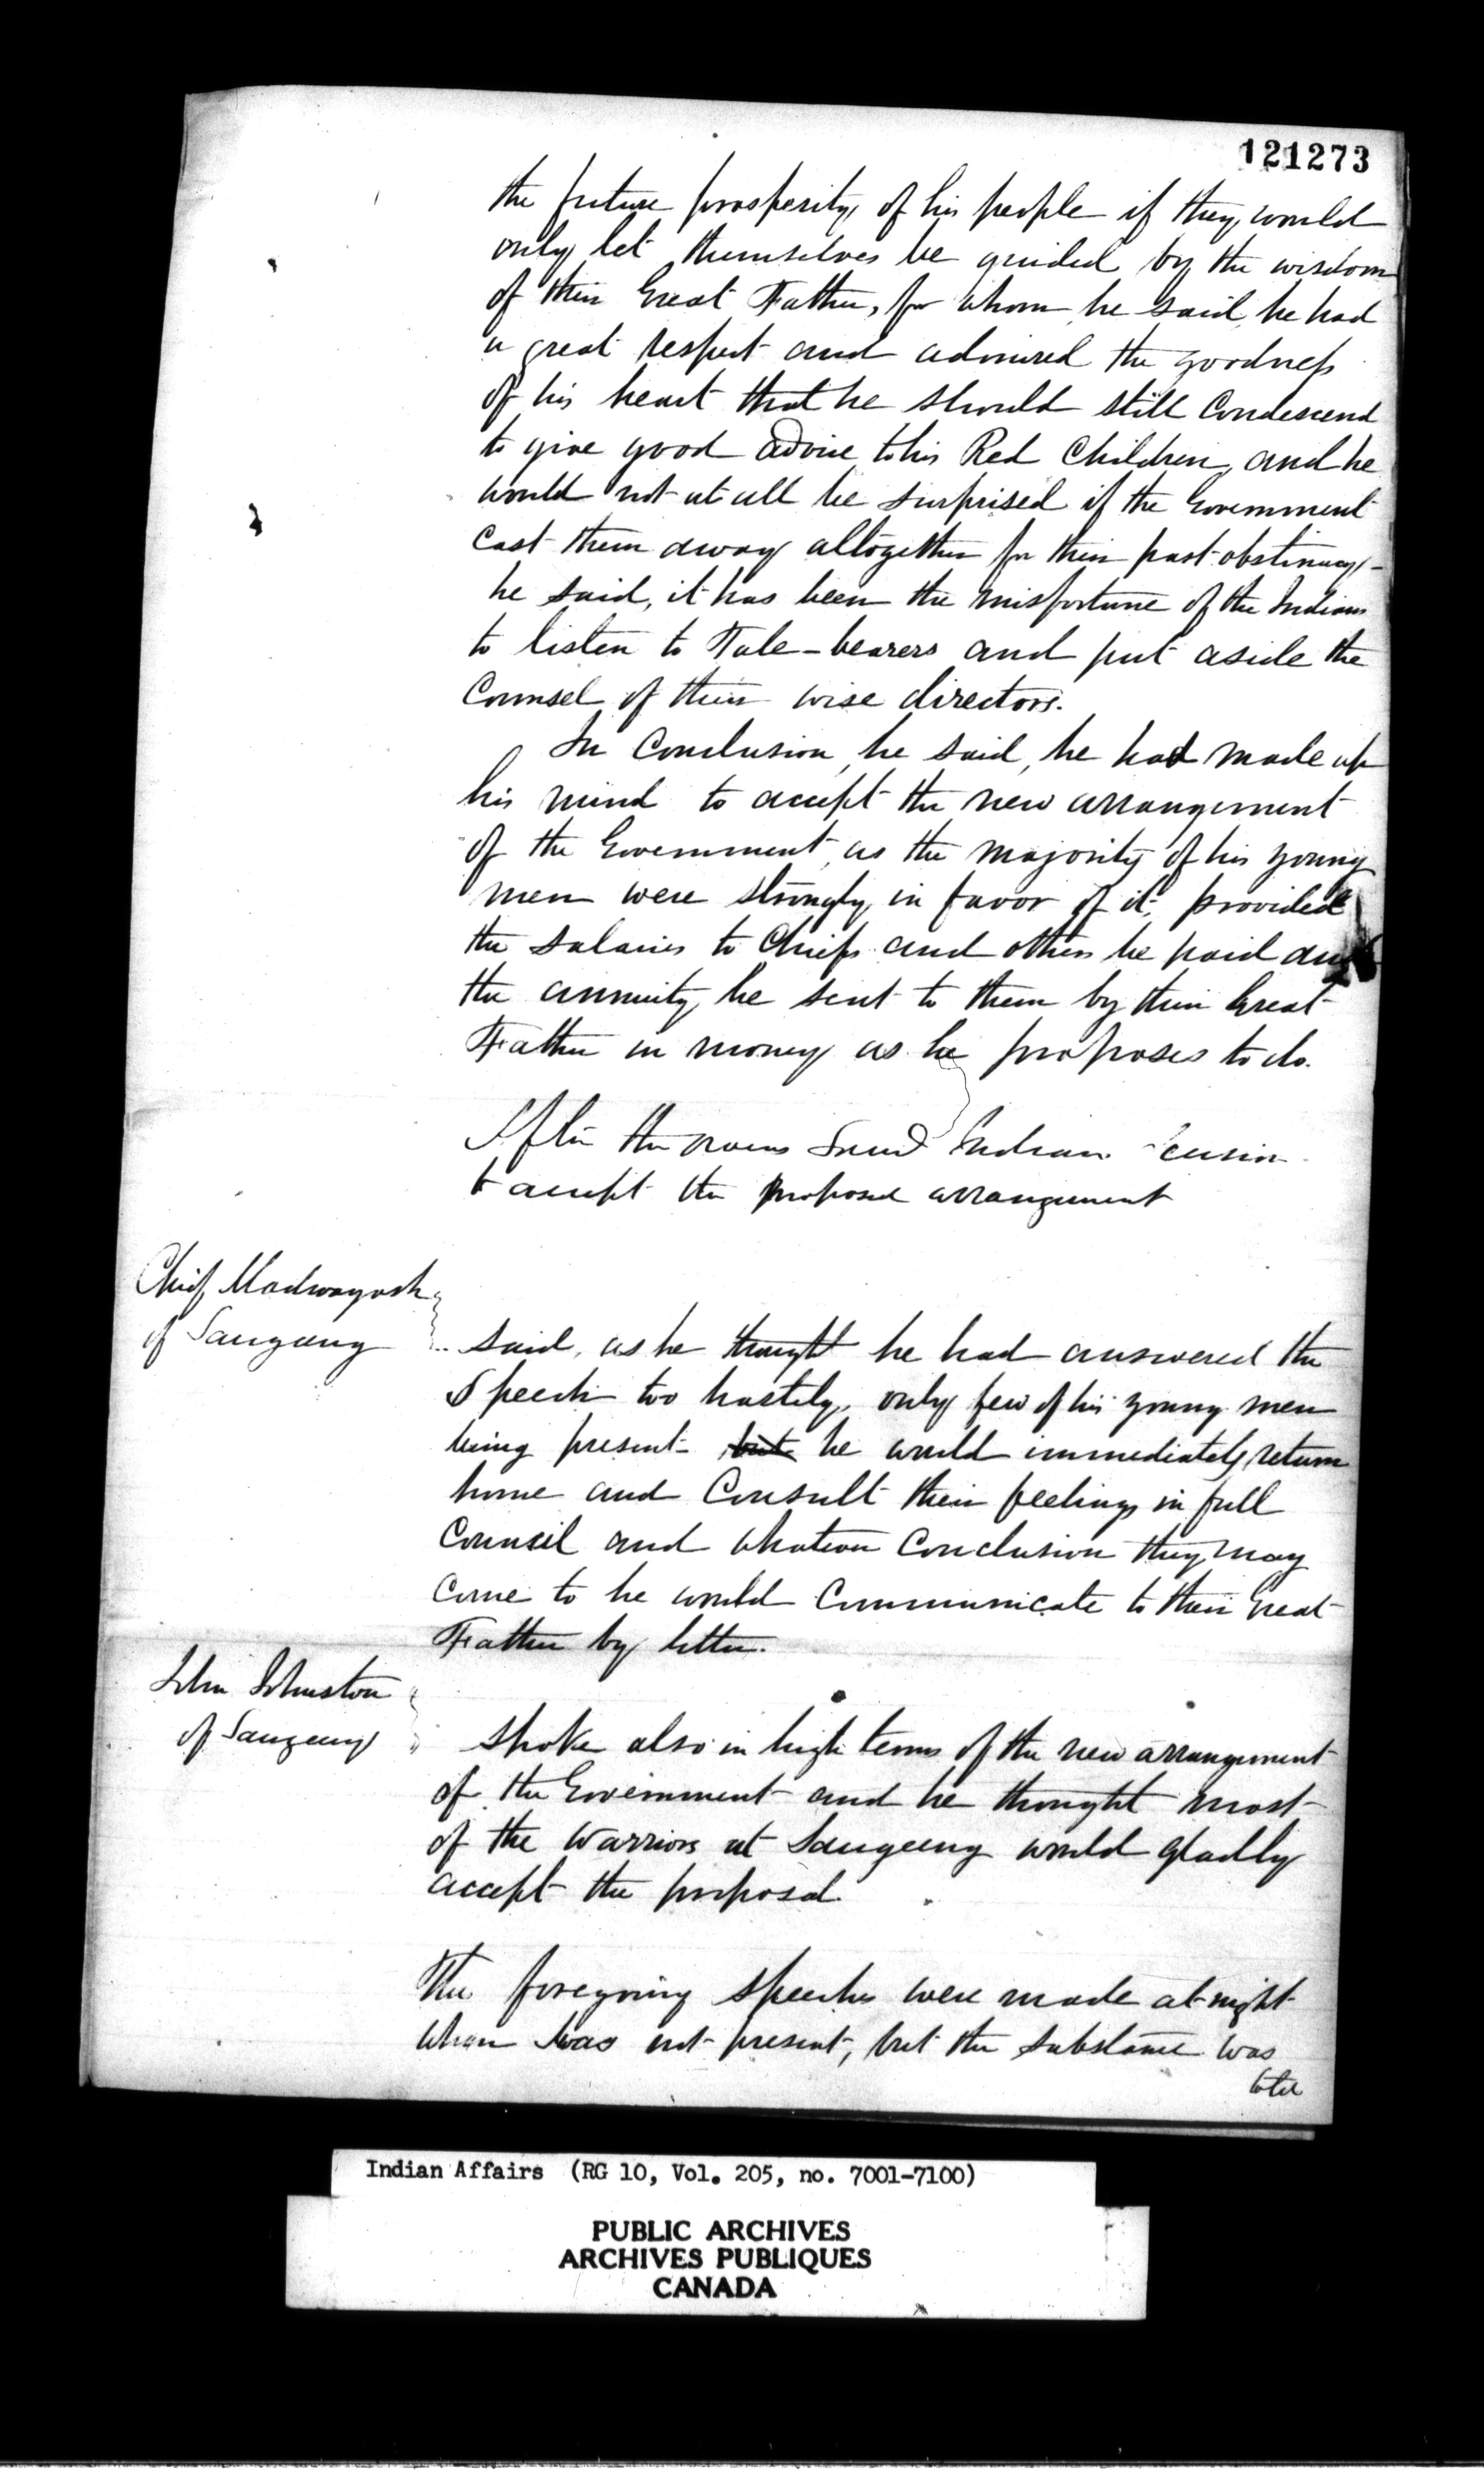 121273
the future prosperity of his people if they would
only let themselves be guided by the wisdom
of their Great Father, for whom he said, he had
a great respect and admired the goodness
of his heart that he should still Condescend
to give good advice to his Red Children, and he
would not at all be surprised if the Government
Cast them away altogether for their past obstinacy -
he said, it has been the misfortune of the Indians
to listen to Tale-bearers and put aside the
Counsel of their wise directors.
In Conclusion, he said, he had made up
his mind to accept the new arrangement
of the Government, as the majority of his young
men were strongly in favor of it, provided
the salaries to Chiefs and others be paid and
the annuity be sent to them by their Great
Father in money as he proposes to do.
After the Owens Sound Indians
to accept the proposed arrangement
Chief Madwayosh
of Saugeeng
said, as he thought he had answered the
Speech too hastily, only few of his young men
being present but he would immediately return
home and Consult their feelings in full
Council and whatever Conclusion they may
Come to he would Communicate to their Great
Father by letter.
John Johnston
of Saugeeng
spoke also in high terms of the new arrangement
of the Government and he thought most
of the Warriors at Saugeeng would gladly
accept the proposal.
The foregoing speeches were made at night
when I was not present, but the substance was
told
Indian Affairs (RG 10, Vol. 205, no. 7001-7100)
PUBLIC ARCHIVES
ARCHIVES PUBLIQUES
CANADA